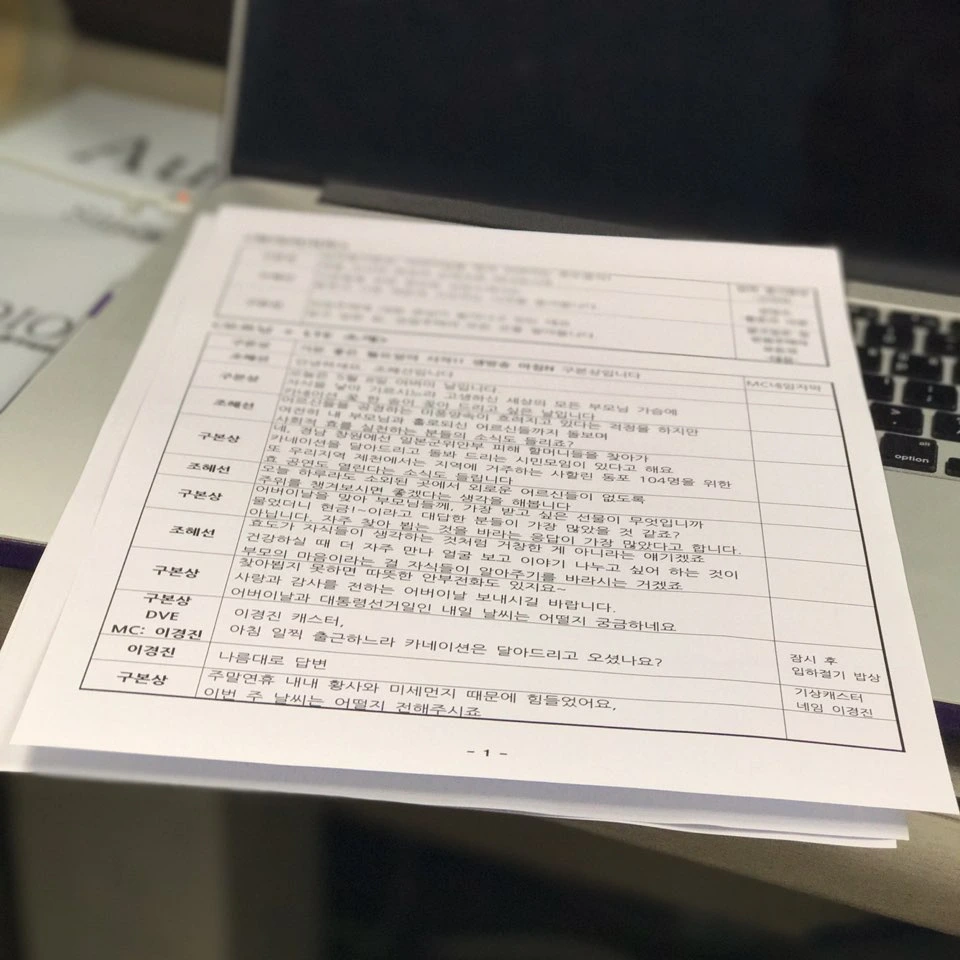 구본상
조혜선
안녕하세요 조혜선입니다
구본상
오늘은 5월 8일 어버이 날입니다
자식을 낳아 기르시느라 고생하신 세상의 모든 부모님 가슴에
카네이션 꽃 한 송이 꽂아 드리고 싶은 날입니다
MC네임자막
조혜선
어르신들을 공경하는 미풍양속이 흐려지고 있다는 걱정을 하지만
여전히 내 부모님과 홀로되신 어르신들까지 돌보며
사회적 효를 실천하는 분들의 소식도 들리죠?
구본상
네, 경남 창원에선 일본군위안부 피해 할머니들을 찾아가
카네이션을 달아드리고 돌봐 드리는 시민모임이 있다고 해요
또 우리지역 제천에서는 지역에 거주하는 사할린 동포 104명을 위한
효 공연도 열린다는 소식도 들립니다
조혜선
오늘 하루라도 소외된 곳에서 외로운 어르신들이 없도록
주위를 챙겨보시면 좋겠다는 생각을 해봅니다
구본상
어버이날을 맞아 부모님들께, 가장 받고 싶은 선물이 무엇입니까
물었더니 현금!~이라고 대답한 분들이 가장 많았을 것 같죠?
아닙니다. 자주 찾아 뵙는 것을 바라는 응답이 가장 많았다고 합니다.
조혜선
효도가 자식들이 생각하는 것처럼 거창한 게 아니라는 얘기겠죠
건강하실 때 더 자주 만나 얼굴 보고 이야기 나누고 싶어 하는 것이
부모의 마음이라는 걸 자식들이 알아주기를 바라시는 거겠죠
구본상
찾아뵙지 못하면 따뜻한 안부전화도 있지요~
사랑과 감사를 전하는 어버이날 보내시길 바랍니다.
어버이날과 대통령선거일인 내일 날씨는 어떨지 궁금하네요
구본상
DVE
MC: 이경진
이경진 캐스터,
아침 일찍 출근하느라 카네이션은 달아드리고 오셨나요?
잠시 후
입하절기 밥상
이경진
나름대로 답변
기상캐스터
네임 이경진
구본상
주말연휴 내내 황사와 미세먼지 때문에 힘들었어요,
이번 주 날씨는 어떨지 전해주시죠
- 1 -
alt
option